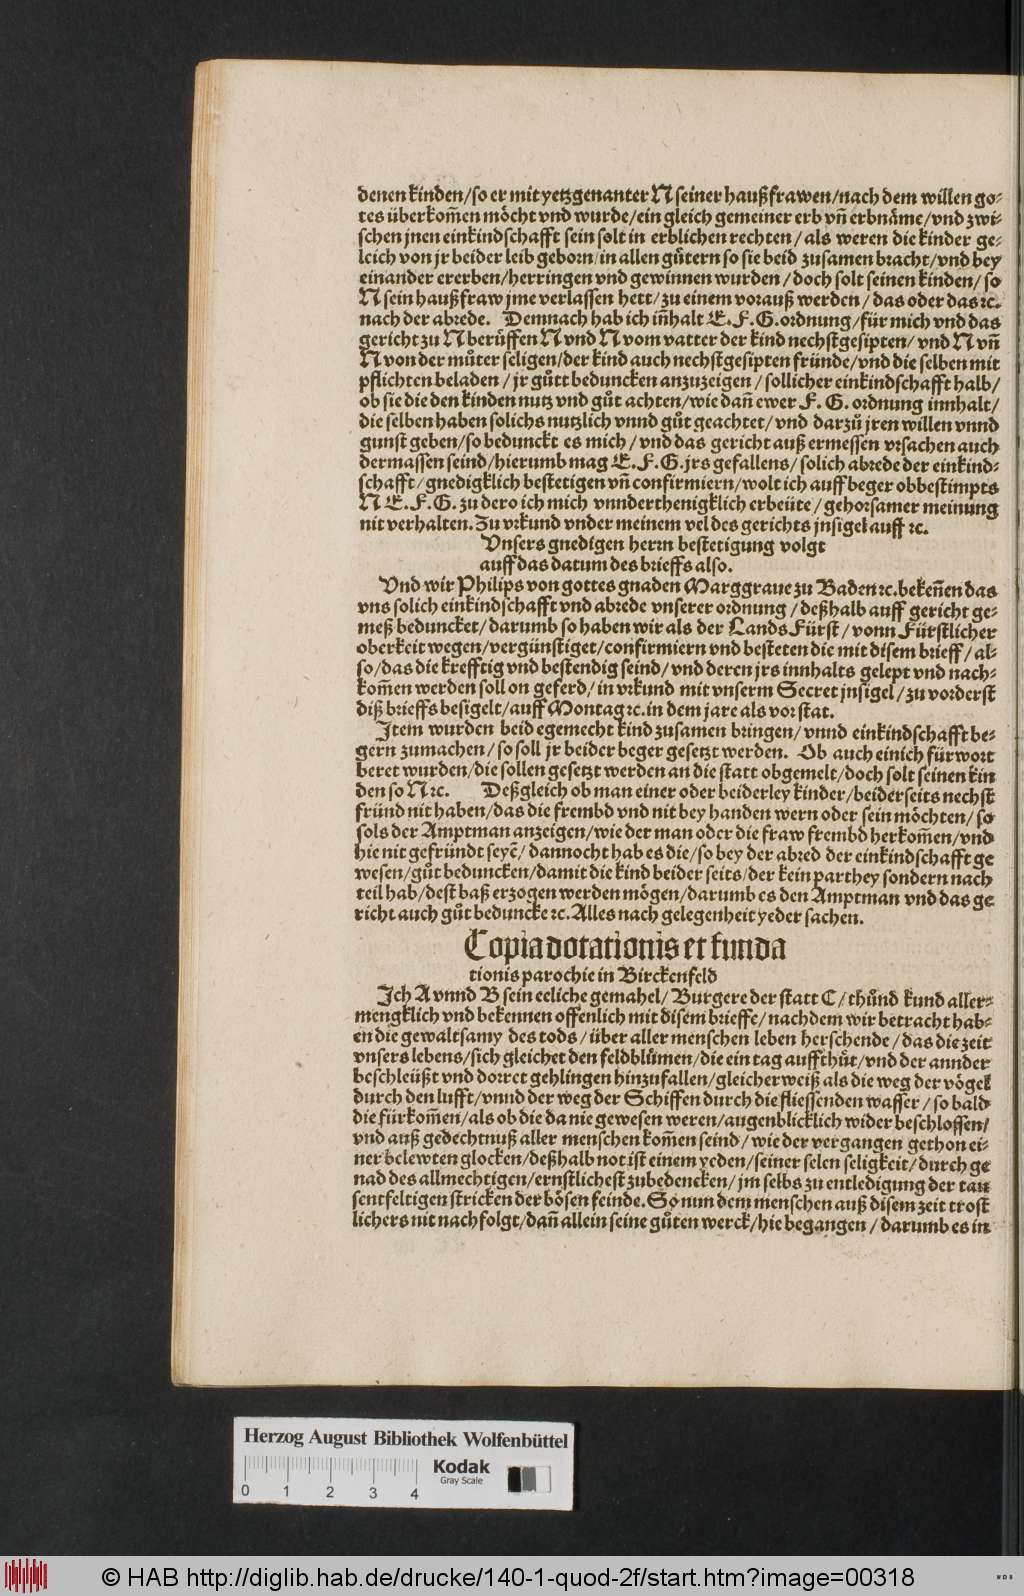 denen kinden/so er mit yetzgenanter N seiner haußfrawen/nach dem willen go⸗
tes überkom̄en möcht vnd wurde/ein gleich gemeiner erb vn̄ erbnäme/vnd zwi⸗
schen jnen einkindschafft sein solt in erblichen rechten/als weren die kinder ge⸗
leich von jr beider leib geborn/in allen gůtern so sie beid zusamen bracht/vnd bey
einander ererben/herringen vnd gewinnen wurden/doch solt seinen kinden/so
N sein haußfraw jme verlassen hett/zu einem vorauß werden/das oder das ꝛc.
nach der abrede. Demnach hab ich in̄halt E. F. G. ordnung/für mich vnd das
gericht zu N berüffen N vnd N vom vatter der kind nechstgesipten/vnd N vn̄
N von der můter seligen/der kind auch nechstgesipten fründe/vnd die selben mit
pflichten beladen/jr gůtt beduncken anzuzeigen/sollicher einkindschafft halb/
ob sie die den kinden nutz vnd gůt achten/wie dan̄ ewer F. G. ordnung innhalt/
die selben haben solichs nutzlich vnnd gůt geachtet/vnd darzů jren willen vnnd
gunst geben/so bedunckt es mich/vnd das gericht auß ermessen vrsachen auch
dermassen seind/hierumb mag E. F. G. jrs gefallens/solich abrede der einkind⸗
schafft/gnedigklich bestetigen vn̄ confirmiern/wolt ich auff beger obbestimpts
N E. F. G. zu dero ich mich vnnderthenigklich erbeüte/gehorsamer meinung
nit verhalten. Zu vrkund vnder meinem vel des gerichts jnsigel auff ꝛc.
Vnsers gnedigen herrn bestetigung volgt
auff das datum des brieffs also.
Vnd wir Philips von gottes gnaden Marggraue zu Baden ꝛc. beken̄en das
vns solich einkindschafft vnd abrede vnserer ordnung/deßhalb auff gericht ge⸗
meß beduncket/darumb so haben wir als der Lands Fürst/vonn Fürstlicher
oberkeit wegen/vergünstiget/confirmiern vnd besteten die mit disem brieff/al⸗
so/das die krefftig vnd bestendig seind/vnd deren jrs innhalts gelept vnd nach⸗
kom̄en werden soll on geferd/in vrkund mit vnserm Secret jnsigel/zu vorderst
diß brieffs besigelt/auff Montag ꝛc. in dem jare als vor stat.
Item wurden beid egemecht kind zusamen bringen/vnnd einkindschafft be⸗
gern zumachen/so soll jr beider beger gesetzt werden. Ob auch einich fürwort
beret wurden/die sollen gesetzt werden an die statt obgemelt/doch solt seinen kin
den so N ꝛc. Deßgleich ob man einer oder beiderley kinder/beiderseits nechst
fründ nit haben/das die frembd vnd nit bey handen wern oder sein möchten/so
sols der Amptman anzeigen/wie der man oder die fraw frembd herkom̄en/vnd
hie nit gefründt seyē/dannocht hab es die/so bey der abred der einkindschafft ge
wesen/gůt beduncken/damit die kind beider seits/der kein parthey sondern nach
teil hab/dest baß erzogen werden mögen/darumb es den Amptman vnd das ge
richt auch gůt beduncke ꝛc. Alles nach gelegenheit yeder sachen.
Copia dotationis et funda
tionis parochie in Birckenfeld
Ich A vnnd B sein eeliche gemahel/Burgere der statt C/thůnd kund aller⸗
mengklich vnd bekennen offenlich mit disem brieffe/nachdem wir betracht hab⸗
en die gewaltsamy des tods/über aller menschen leben herschende/das die zeit
vnsers lebens/sich gleichet den feldblůmen/die ein tag auffthůt/vnd der annder
beschleüßt vnd dorret gehlingen hinzufallen/gleicherweiß als die weg der vögel
durch den lufft/vnnd der weg der Schiffen durch die fliessenden wasser/so bald
die fürkom̄en/als ob die da nie gewesen weren/augenblicklich wider beschlossen/
vnd auß gedechtnuß aller menschen kom̄en seind/wie der vergangen gethon ei⸗
ner belewten glocken/deßhalb not ist einem yeden/seiner selen seligkeit/durch ge
nad des allmechtigen/ernstlichest zubedencken/jm selbs zu entledigung der tau
sentfeltigen stricken der bösen feinde. So nun dem menschen auß disem zeit trost
lichers nit nachfolgt/dan̄ allein seine gůten werck/hie begangen/darumb es in
Herzog August Bibliothek Wolfenbüttel
Kodak
Gray Scale
0 1 2 3 4
© HAB http://diglib.hab.de/drucke/140-1-quod-2f/start.htm?image=00318